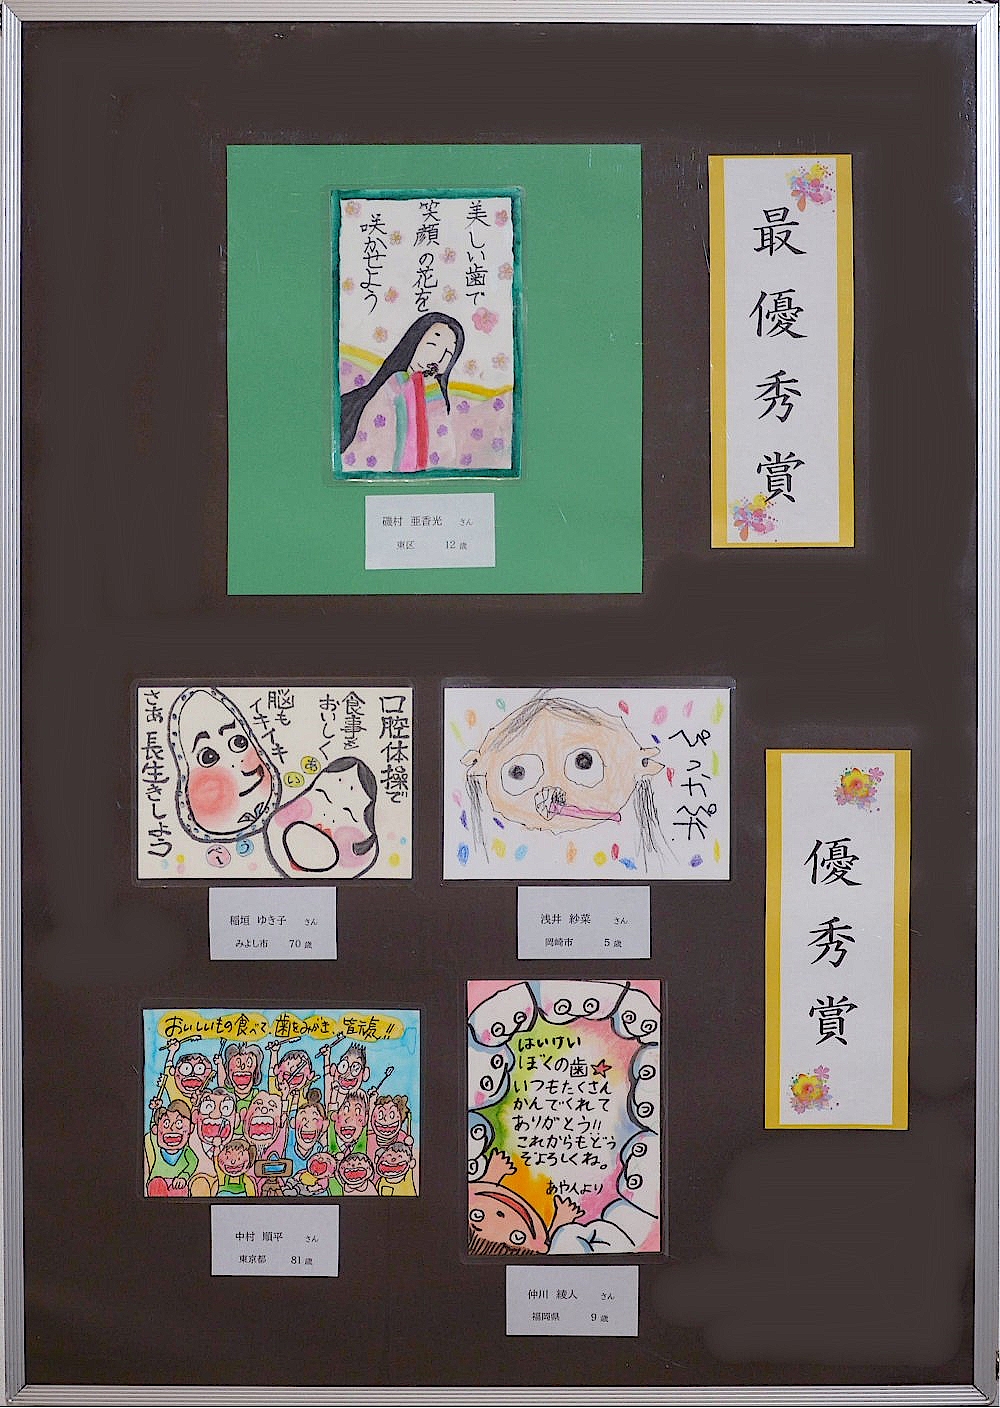 最優秀賞
美しい歯で
笑顔の花を
咲かせよう
磯村 亜香光 さん
東区 12歳
優秀賞
口腔体操で
食事を
おいしく
脳も
イキイキ
さあ 長生きしよう
あ
い
う
べー
稲垣 ゆき子 さん
みよし市 70歳
浅井 紗菜 さん
岡崎市 5歳
おいしいもの食べて、歯をみがき、皆元気!!
中村 順平 さん
東京都 81歳
はいけい
ぼくの歯☆
いつもたくさん
かんでくれて
ありがとう!!
これからもどう
ぞよろしくね。
あやんより
仲川 綾人 さん
福岡県 9歳